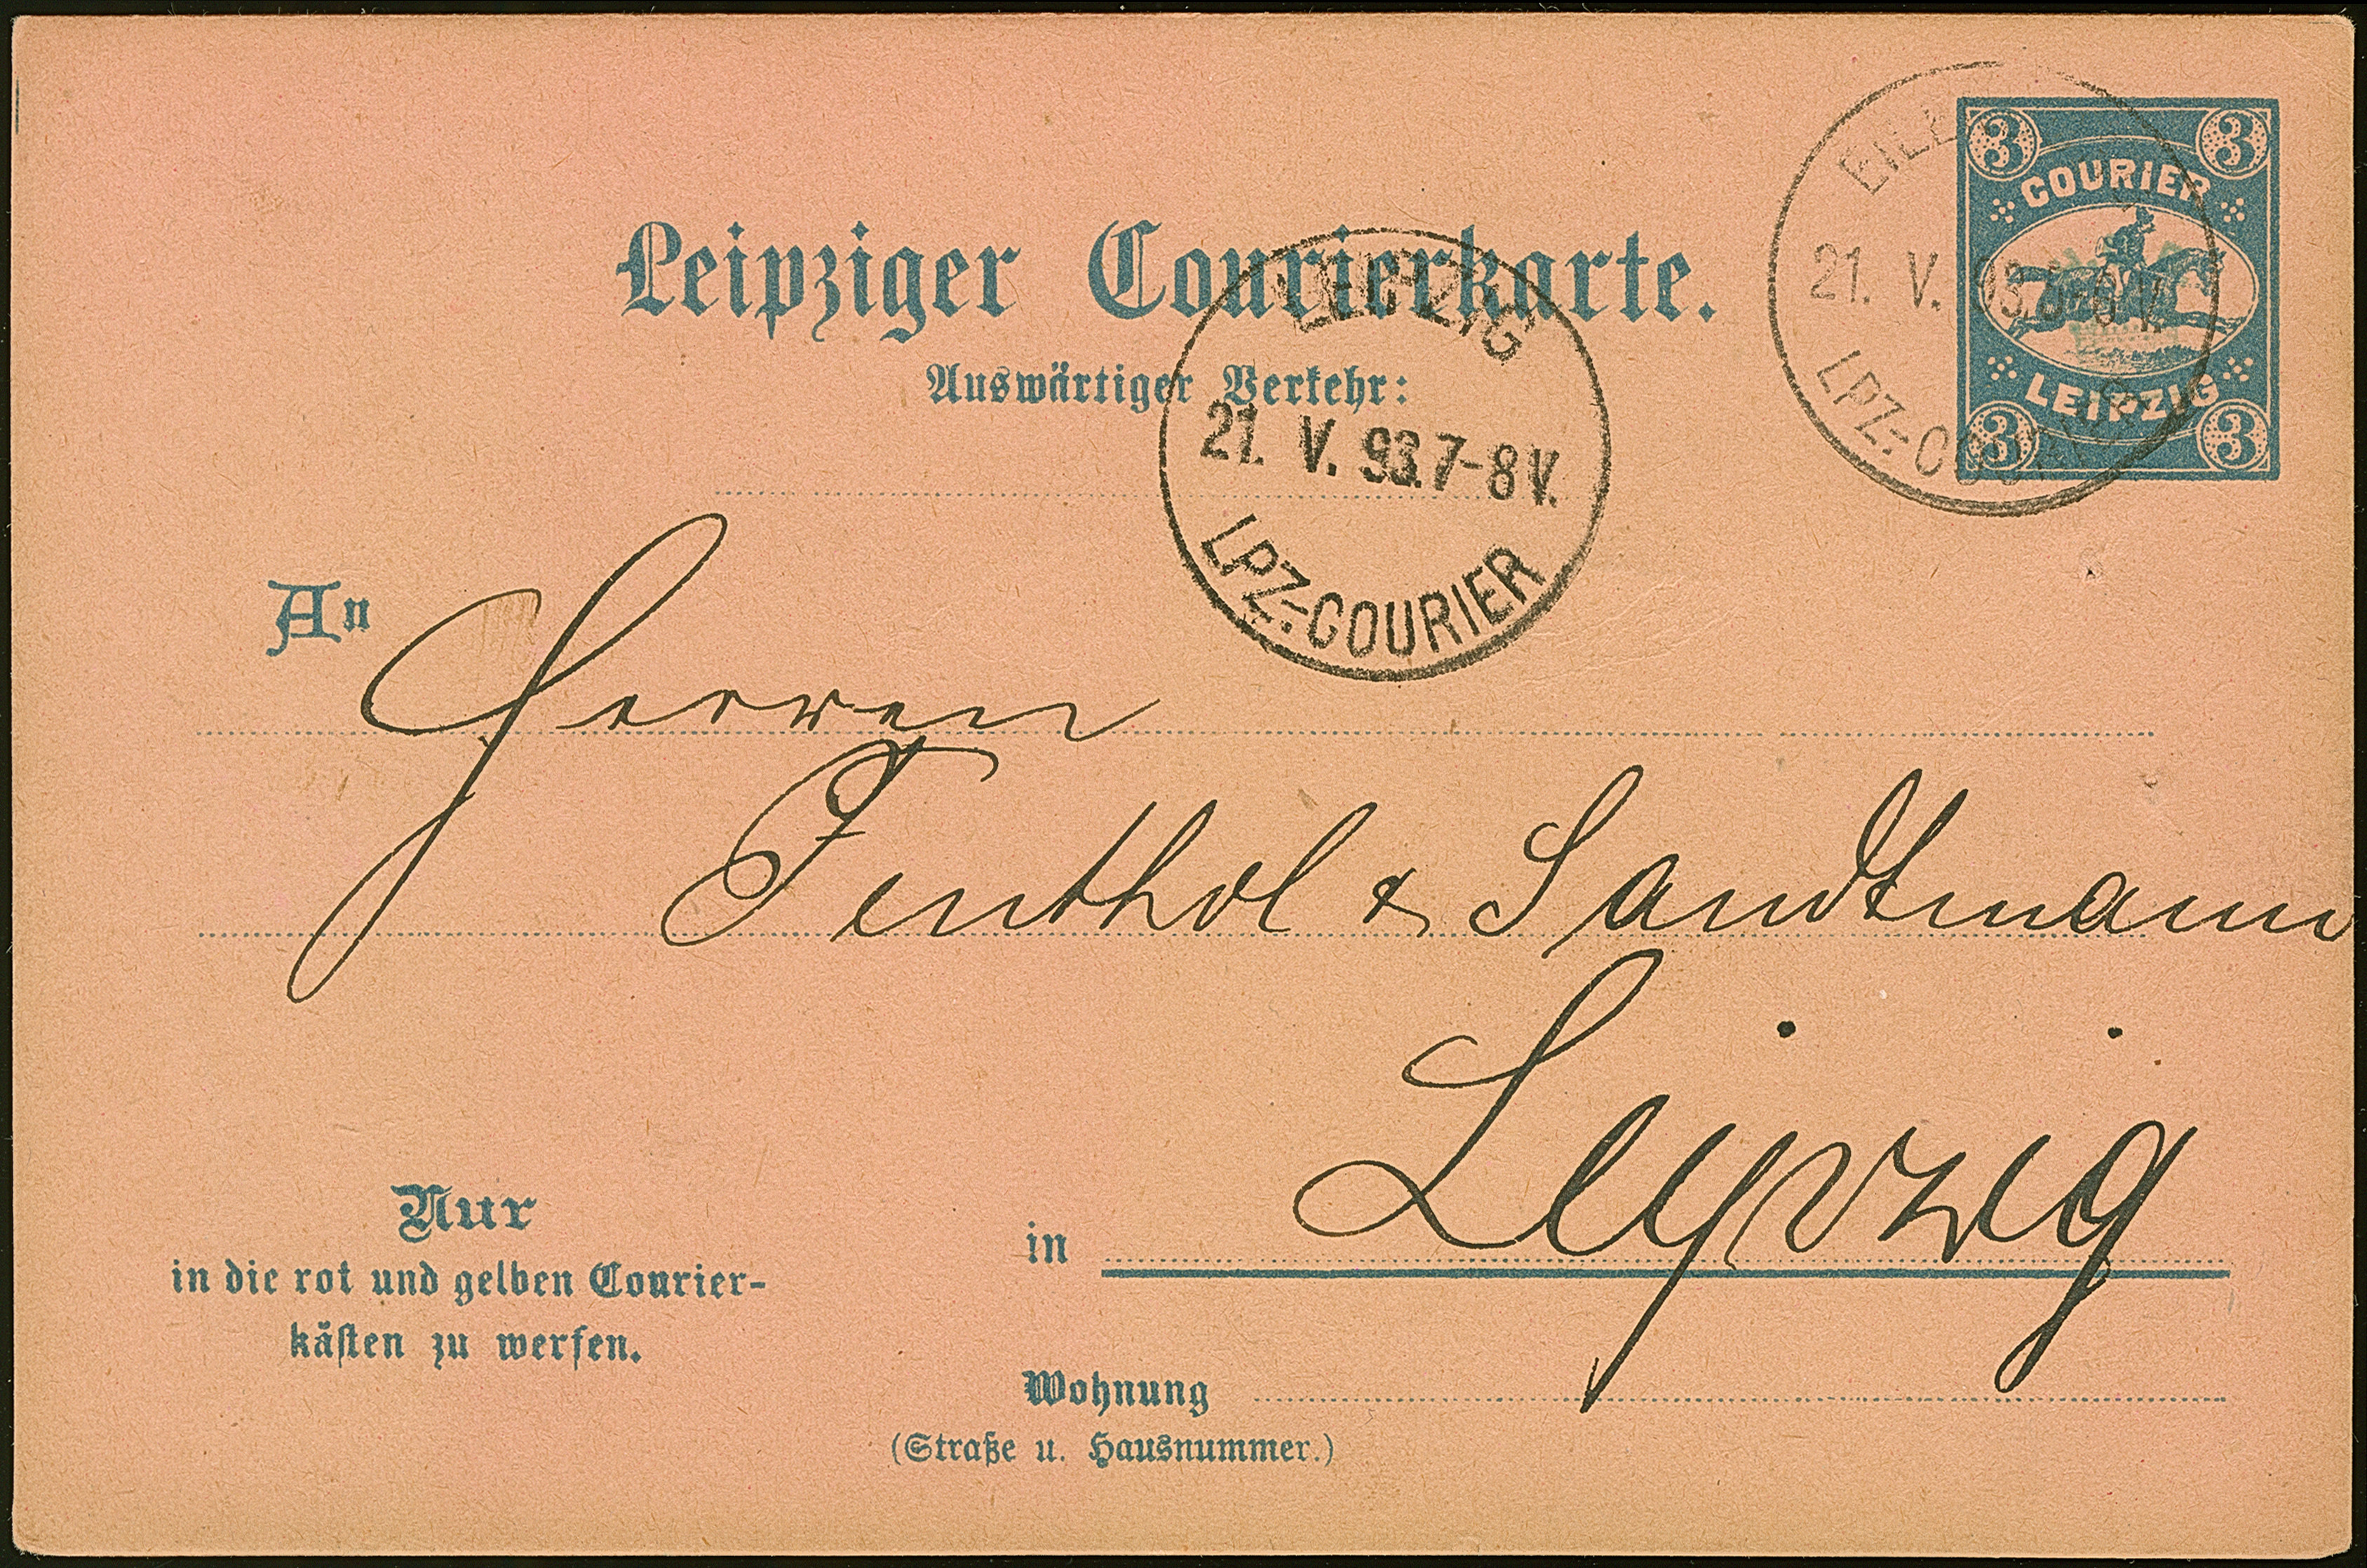 Leipziger Courierkarte.
Auswärtiger Verkehr:
3 3
COURIER
LEIPZIG
3 3
21. V. 93. 5-6 V.
LPZ.-COURIER
LEIPZIG
21. V. 93. 7-8 V.
LPZ.-COURIER
An
Herren
Fenthol & Sandtmann
in Leipzig
Nur
in die rot und gelben Courier-
kästen zu werfen.
Wohnung
(Straße u. Hausnummer.)